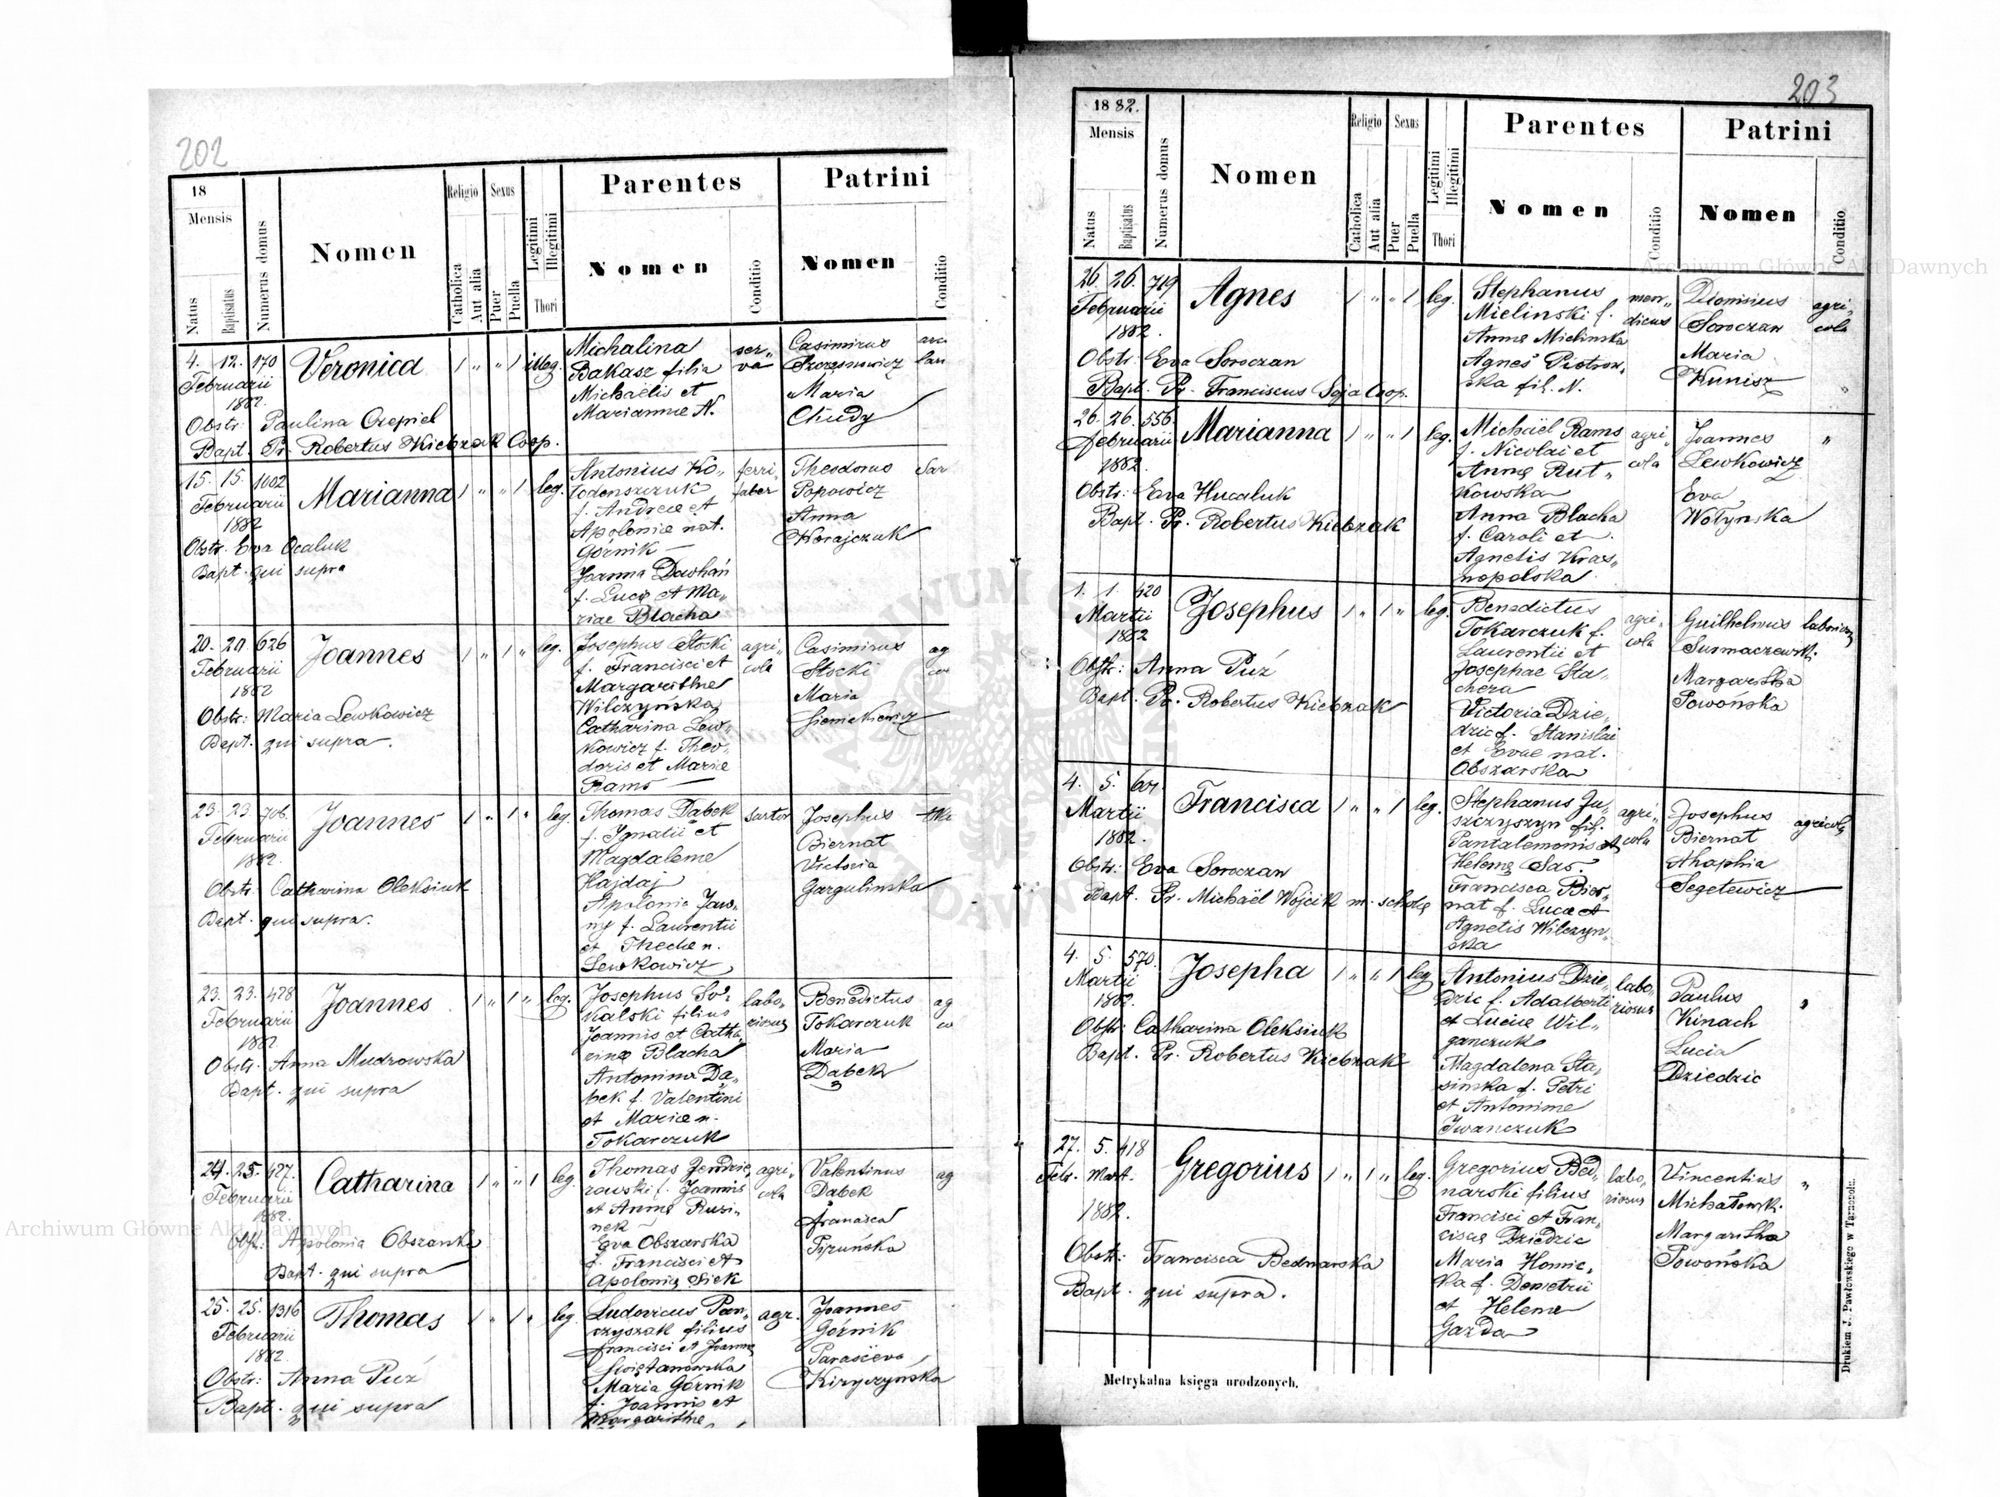 202
18
Mensis
Natus
Baptisatus
Numerus domus
Nomen
Religio
Catholica
Aut alia
Sexus
Puer
Puella
Legitimi
Illegitimi
Thori
Parentes
Nomen
Conditio
Patrini
Nomen
Conditio
4. 12. 170
Februarii
1882.
Veronica
1 " " 1 illeg.
Michalina
Bakasz filia
Michaelis et
Mariannae N.
ser-
va
Casimirus
Szczesnowicz
Maria
Chudy
Obstr: Paulina Czepiel
Bapt. Pr. Robertus Kiebzak Coop.
15. 15. 1002
Februarii
1882
Marianna
1 " " 1 leg.
Antonius Ko-
łodenszczuk
f. Andreae et
Apoloniae nat.
Górnik
Joanna Dawhań
f. Lucae et Ma-
riae Blacha
ferri-
faber
Theodorus
Popowicz
Anna
Korajczuk
Sar
Obstr. Eva Ocaluk
Bapt. qui supra
20. 20. 626
Februarii
1882
Joannes
1 " 1 " leg.
Josephus Stocki
f. Francisci et
Margarithae
Wilczyńska
Catharina Lew-
kowicz f. Theo-
doris et Mariae
Rams
agri-
cola
Casimirus
Stocki
Maria
Siemekiewicz
ag
co
Obstr: Maria Lewkowicz
Bapt. qui supra.
23. 23. 706.
Februarii
1882.
Joannes
1 " 1 " leg.
Thomas Dabek
f. Ignatii et
Magdalenae
Hajdaj
Apolonia Jaw-
ny f. Laurentii
et Theclae n.
Lewkowicz
sartor
Josephus
Biernat
Victoria
Gargulinska
Obstr: Catharina Oleksiuk
Bapt. qui supra.
23. 23. 428
Februarii
1882.
Joannes
1 " 1 " leg.
Josephus So-
kalski filius
Joannis et Catha-
rinae Blacha
Antonina Dą-
bek f. Valentini
et Mariae n.
Tokarczuk
labo-
riosus
Benedictus
Tokarczuk
Maria
Dąbek
ag
co
Obstr: Anna Mudrowska
Bapt. qui supra
24. 25. 427.
Februarii
1882.
Catharina
1 " " 1 leg.
Thomas Jendrze-
rowski f. Joannis
et Annae Rusi-
nek
Eva Obszarska
f. Francisci et
Apoloniae Siek
agri-
cola
Valentinus
Dabek
Francisca
Pipuńska
ag
Obst: Apolonia Obszanka
Bapt. qui supra
25. 25. 1316
Februarii
1882.
Thomas
1 " 1 " leg.
Ludovicus Pan-
czyszak filius
Francisci et Joannae
Świętanowska
Maria Górnik
f. Joannis et
Margarithae
agr.
Joannes
Górnik
Parascieva
Kiryczyńska
Obstr: Anna Puź
Bapt. qui supra
203
1882.
Mensis
Natus
Baptisatus
Numerus domus
Nomen
Religio
Catholica
Aut alia
Sexus
Puer
Puella
Legitimi
Illegitimi
Thori
Parentes
Nomen
Conditio
Patrini
Nomen
Conditio
26. 26. 719
Februarii
1882.
Agnes
1 " " 1 leg.
Stephanus
Mielinski f.
Annae Mielinska
Agnes Piotrow-
ska fil. N.
men-
dicus
Dionisius
Soroczan
Maria
Kunisz
agri-
cola
"
Obstr: Eva Soroczan
Bapt. Pr. Franciscus Soja Coop.
26. 26. 556.
Februarii
1882.
Marianna
1 " " 1 leg.
Michaël Rams
f. Nicolai et
Annae Rut-
kowska
Anna Blacha
f. Caroli et
Agnetis Kras-
nopolska
agri-
cola
Joannes
Lewkowicz
Eva
Wołynska
"
Obstr: Eva Hucaluk
Bapt. Pr. Robertus Kiebzak
1. 1. 420
Martii
1882
Josephus
1 " 1 " leg.
Benedictus
Tokarczuk f.
Laurentii et
Josephae Sta-
chera
Victoria Dzie-
dzic f. Stanislai
et Evae nat.
Obszarska
agri-
cola
Guilhelmus
Surmaczewski
Margaritha
Powońska
Obstr: Anna Puź
Bapt. Pr. Robertus Kiebzak
4. 5.
Martii
1882.
Francisca
1 " " 1 leg.
Stephanus Ju-
szczyszyn fil.
Pantalemonis et
Helenae Sas.
Francisca Bier-
nat f. Lucae et
Agnetis Wilczyn-
ska
agri-
cola
Josephus
Biernat
Ahaphia
Segetewicz
agricola
Obstr: Eva Soroczan
Bapt. Pr. Michaël Wojcik m. scholae
4. 5. 570.
Martii
1882.
Josepha
1 " " 1 leg.
Antonius Dzie-
dzic f. Adalberti
et Luciae Wil-
ganczuk
Magdalena Sta-
sinska f. Petri
et Antoninae
Iwanczuk
labo-
riosus
Paulus
Kinach
Lucia
Dziedzic
"
Obstr: Catharina Oleksiuk
Bapt. Pr. Robertus Kiebzak
27. 5. 418
Febr. Mart.
1882.
Gregorius
1 " 1 " leg.
Gregorius Bed-
narski filius
Francisci et Fran-
ciscae Dziedzic
Maria Homic-
ka f. Demetrii
et Helenae
Gazda
labo-
riosus
Vincentius
Michałowski
Margaritha
Powońska
"
Obstr: Francisca Bednarska
Bapt. qui supra.
Metrykalna księga urodzonych.
Drukiem J. Pawłowskiego w Tarnopolu.
Archiwum Główne Akt Dawnych
Archiwum Główne Akt Dawnych